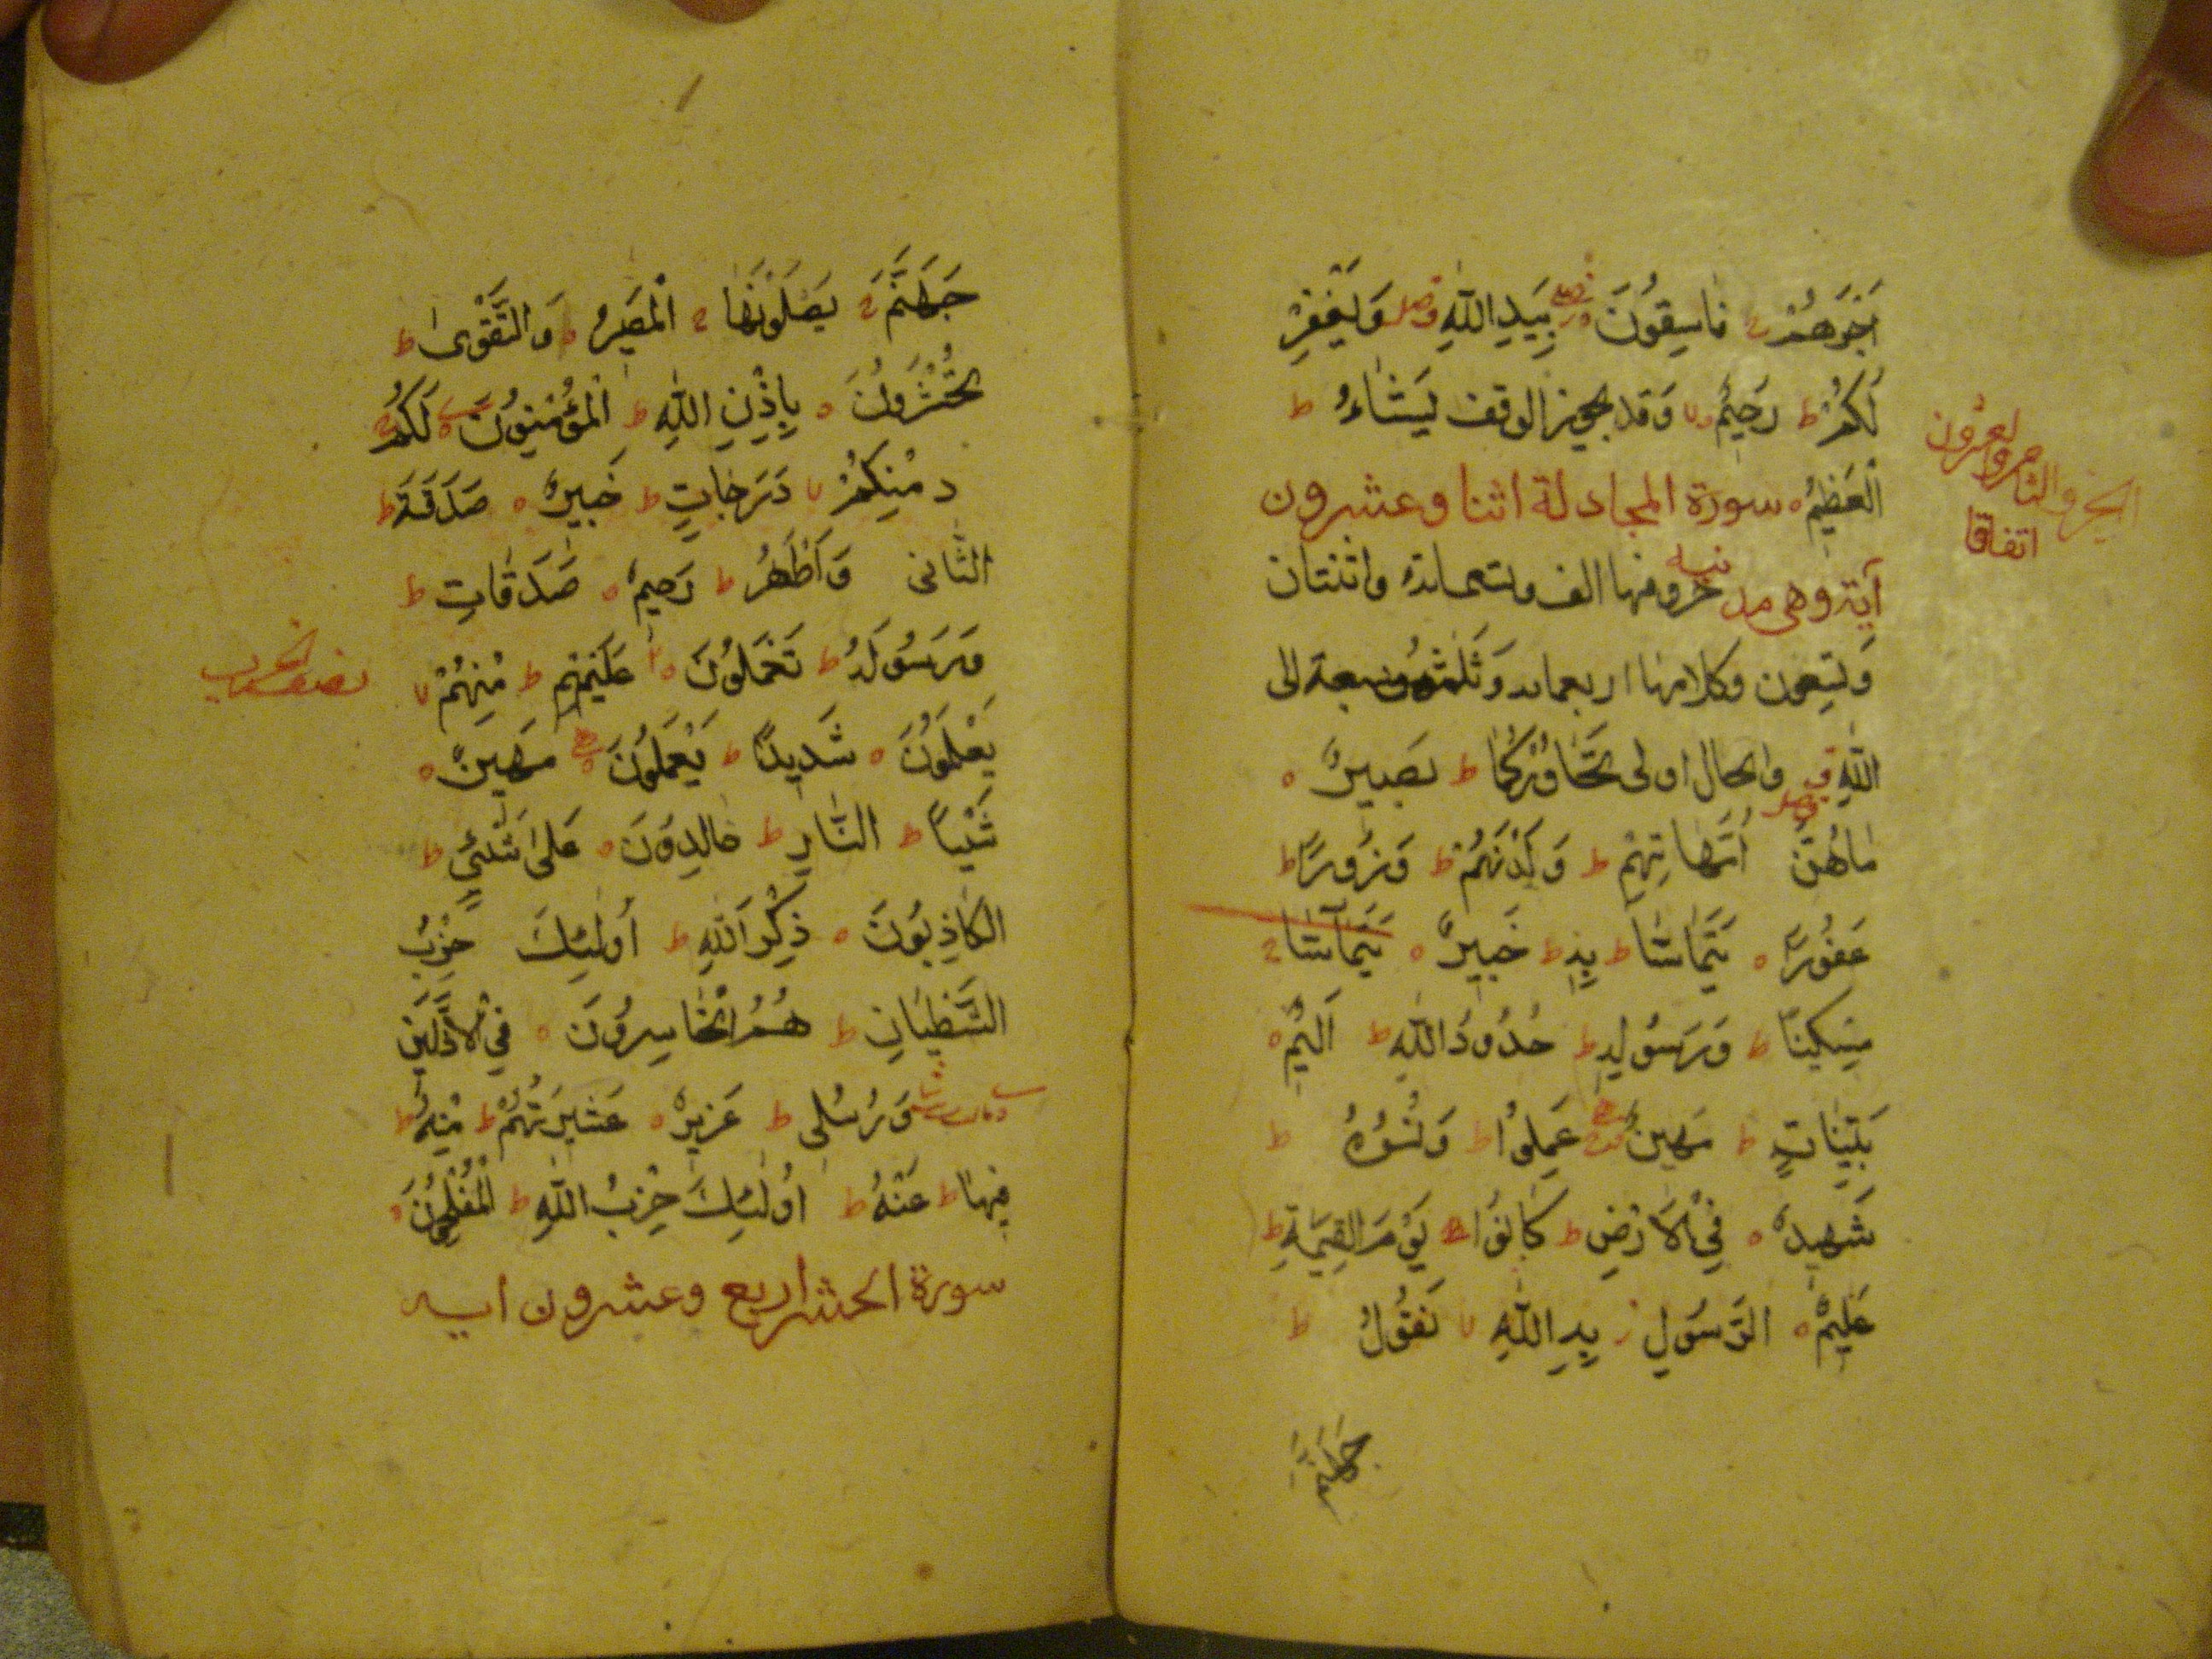 اَجْرَهُمْ ج فَاسِقُونَ ه بِيَدِ اللّٰهِ وَيَغْفِرْ
لَكُمْ ط رَحِيْمٌ وَقَد يجيز الوقف يَشَاءُ ط
الْعَظِيْمِ ه سورة المجادلة اثنا وعشرون
آية وهى مدنية حروفها الف وتسعمائة واثنتان
وَتسِعون وكلامها اربعمائه وَثَلثون سبعة الى
اللّٰهِ ق والحال اولى تَحَاوُرَكُمَا ط بَصِيرٌ ه
مَاهُنَّ اُمَّهَاتِهِمْ ط وَلَدْنَهُمْ ط وَزُورًا ط
غَفُورٌ ه يَتَمَاسَّا ط بِهِ ط خَبِيرٌ ه يَتَمَاسَّا ج
مِسْكِينًا ط وَرَسُولِهِ ط حُدُودُ اللّٰهِ ط اَلِيْمٌ ه
بَيِّنَاتٍ ط مُهِينٌ عَمِلُوْا ط وَنَسُوْهُ ط
شَهِيدٌ ه فِي الْاَرْضِ ط كَانُوْا يَوْمَ الْقِيٰمَةِ ط
عَلِيمٌ ه الرَّسُولِ ز بِهِ اللّٰهُ لا نَقُولُ ط
الجزو الثامن والعشرون
اتفاقا
جَهَنَّمُ
جَهَنَّمُ ج يَصْلَوْنَهَا ج الْمَصِيرُ ه وَالتَّقْوٰى ط
تُحْشَرُونَ ه بِاِذْنِ اللّٰهِ ط الْمُؤْمِنُوْنَ ه لَكُمْ ج
مِنْكُمْ لا دَرَجَاتٍ ط خَبِيرٌ ه صَدَقَةً ط
الثَّانى وَاَطْهَرُ ط رَحِيمٌ ه صَدَقَاتٍ ط
وَرَسُولَهُ ط تَعْمَلُوْنَ ه عَلَيْهِمْ ط مِنْهُمْ لا
نصف الحزب
يَعْلَمُوْنَ ه شَدِيدًا ط يَعْمَلُوْنَ مُهِينٌ ه
شَيْئًا ط النَّارِ ط خَالِدُوْنَ ه عَلٰى شَيْءٍ ط
الْكَاذِبُوْنَ ه ذِكْرَ اللّٰهِ ط اُولٰئِكَ حِزْبُ
الشَّيْطَانِ ط هُمُ الْخَاسِرُوْنَ ه فِي الْاَذَلِّيْنَ
وَرُسُلِى ط عَزِيزٌ ه عَشِيرَتَهُمْ ط مِنْهُ ط
فِيهَا ط عَنْهُ ط اُولٰئِكَ حِزْبُ اللّٰهِ ط الْمُفْلِحُوْنَ ه
سورة الحشر اربع وعشرون ايه